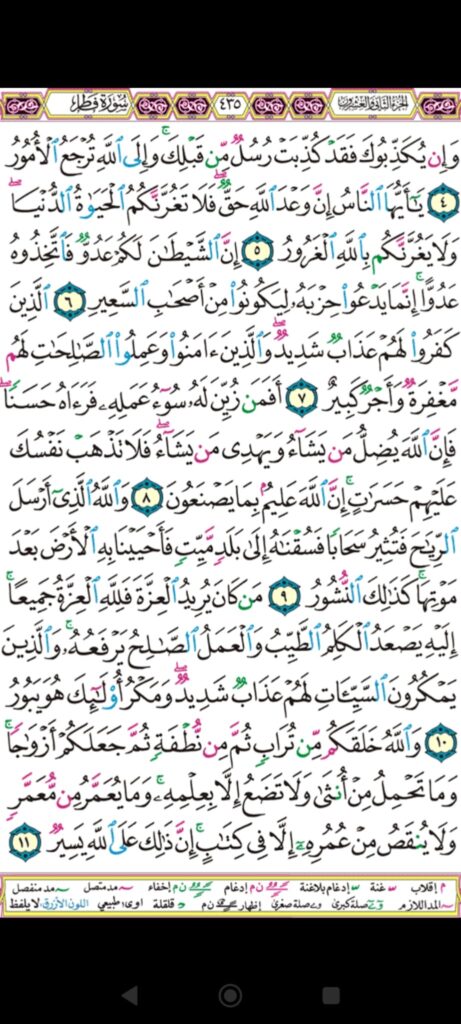 الجزء الثاني والعشرون ٤٣٥ سورة فطر
وَإِن يُكَذِّبُوكَ فَقَدْ كُذِّبَتْ رُسُلٌ مِّن قَبْلِكَ ۚ وَإِلَى ٱللَّهِ تُرْجَعُ ٱلْأُمُورُ
٤ يَـٰٓأَيُّهَا ٱلنَّاسُ إِنَّ وَعْدَ ٱللَّهِ حَقٌّ ۖ فَلَا تَغُرَّنَّكُمُ ٱلْحَيَوٰةُ ٱلدُّنْيَا ۖ
وَلَا يَغُرَّنَّكُم بِٱللَّهِ ٱلْغَرُورُ ٥ إِنَّ ٱلشَّيْطَـٰنَ لَكُمْ عَدُوٌّ فَٱتَّخِذُوهُ
عَدُوًّا ۚ إِنَّمَا يَدْعُوا۟ حِزْبَهُۥ لِيَكُونُوا۟ مِنْ أَصْحَـٰبِ ٱلسَّعِيرِ ٦ ٱلَّذِينَ
كَفَرُوا۟ لَهُمْ عَذَابٌ شَدِيدٌ ۖ وَٱلَّذِينَ ءَامَنُوا۟ وَعَمِلُوا۟ ٱلصَّـٰلِحَـٰتِ لَهُم
مَّغْفِرَةٌ وَأَجْرٌ كَبِيرٌ ٧ أَفَمَن زُيِّنَ لَهُۥ سُوٓءُ عَمَلِهِۦ فَرَءَاهُ حَسَنًا ۖ
فَإِنَّ ٱللَّهَ يُضِلُّ مَن يَشَآءُ وَيَهْدِى مَن يَشَآءُ ۖ فَلَا تَذْهَبْ نَفْسُكَ
عَلَيْهِمْ حَسَرَٰتٍ ۚ إِنَّ ٱللَّهَ عَلِيمٌۢ بِمَا يَصْنَعُونَ ٨ وَٱللَّهُ ٱلَّذِىٓ أَرْسَلَ
ٱلرِّيَـٰحَ فَتُثِيرُ سَحَابًا فَسُقْنَـٰهُ إِلَىٰ بَلَدٍ مَّيِّتٍ فَأَحْيَيْنَا بِهِ ٱلْأَرْضَ بَعْدَ
مَوْتِهَا ۚ كَذَٰلِكَ ٱلنُّشُورُ ٩ مَن كَانَ يُرِيدُ ٱلْعِزَّةَ فَلِلَّهِ ٱلْعِزَّةُ جَمِيعًا ۚ
إِلَيْهِ يَصْعَدُ ٱلْكَلِمُ ٱلطَّيِّبُ وَٱلْعَمَلُ ٱلصَّـٰلِحُ يَرْفَعُهُۥ ۚ وَٱلَّذِينَ
يَمْكُرُونَ ٱلسَّيِّـَٔاتِ لَهُمْ عَذَابٌ شَدِيدٌ ۖ وَمَكْرُ أُو۟لَـٰٓئِكَ هُوَ يَبُورُ
١٠ وَٱللَّهُ خَلَقَكُم مِّن تُرَابٍ ثُمَّ مِن نُّطْفَةٍ ثُمَّ جَعَلَكُمْ أَزْوَٰجًا ۚ
وَمَا تَحْمِلُ مِنْ أُنثَىٰ وَلَا تَضَعُ إِلَّا بِعِلْمِهِۦ ۚ وَمَا يُعَمَّرُ مِن مُّعَمَّرٍ
وَلَا يُنقَصُ مِنْ عُمُرِهِۦٓ إِلَّا فِى كِتَـٰبٍ ۚ إِنَّ ذَٰلِكَ عَلَى ٱللَّهِ يَسِيرٌ ١١
م إقلاب غنة إدغام بلاغنة ن م إدغام ن م إخفاء مد متصل مد منفصل
المد اللازم صلة كبرى صلة صغرى إظهار ن م قلقلة اوى: طبيعي اللون الأزرق: لا يلفظ